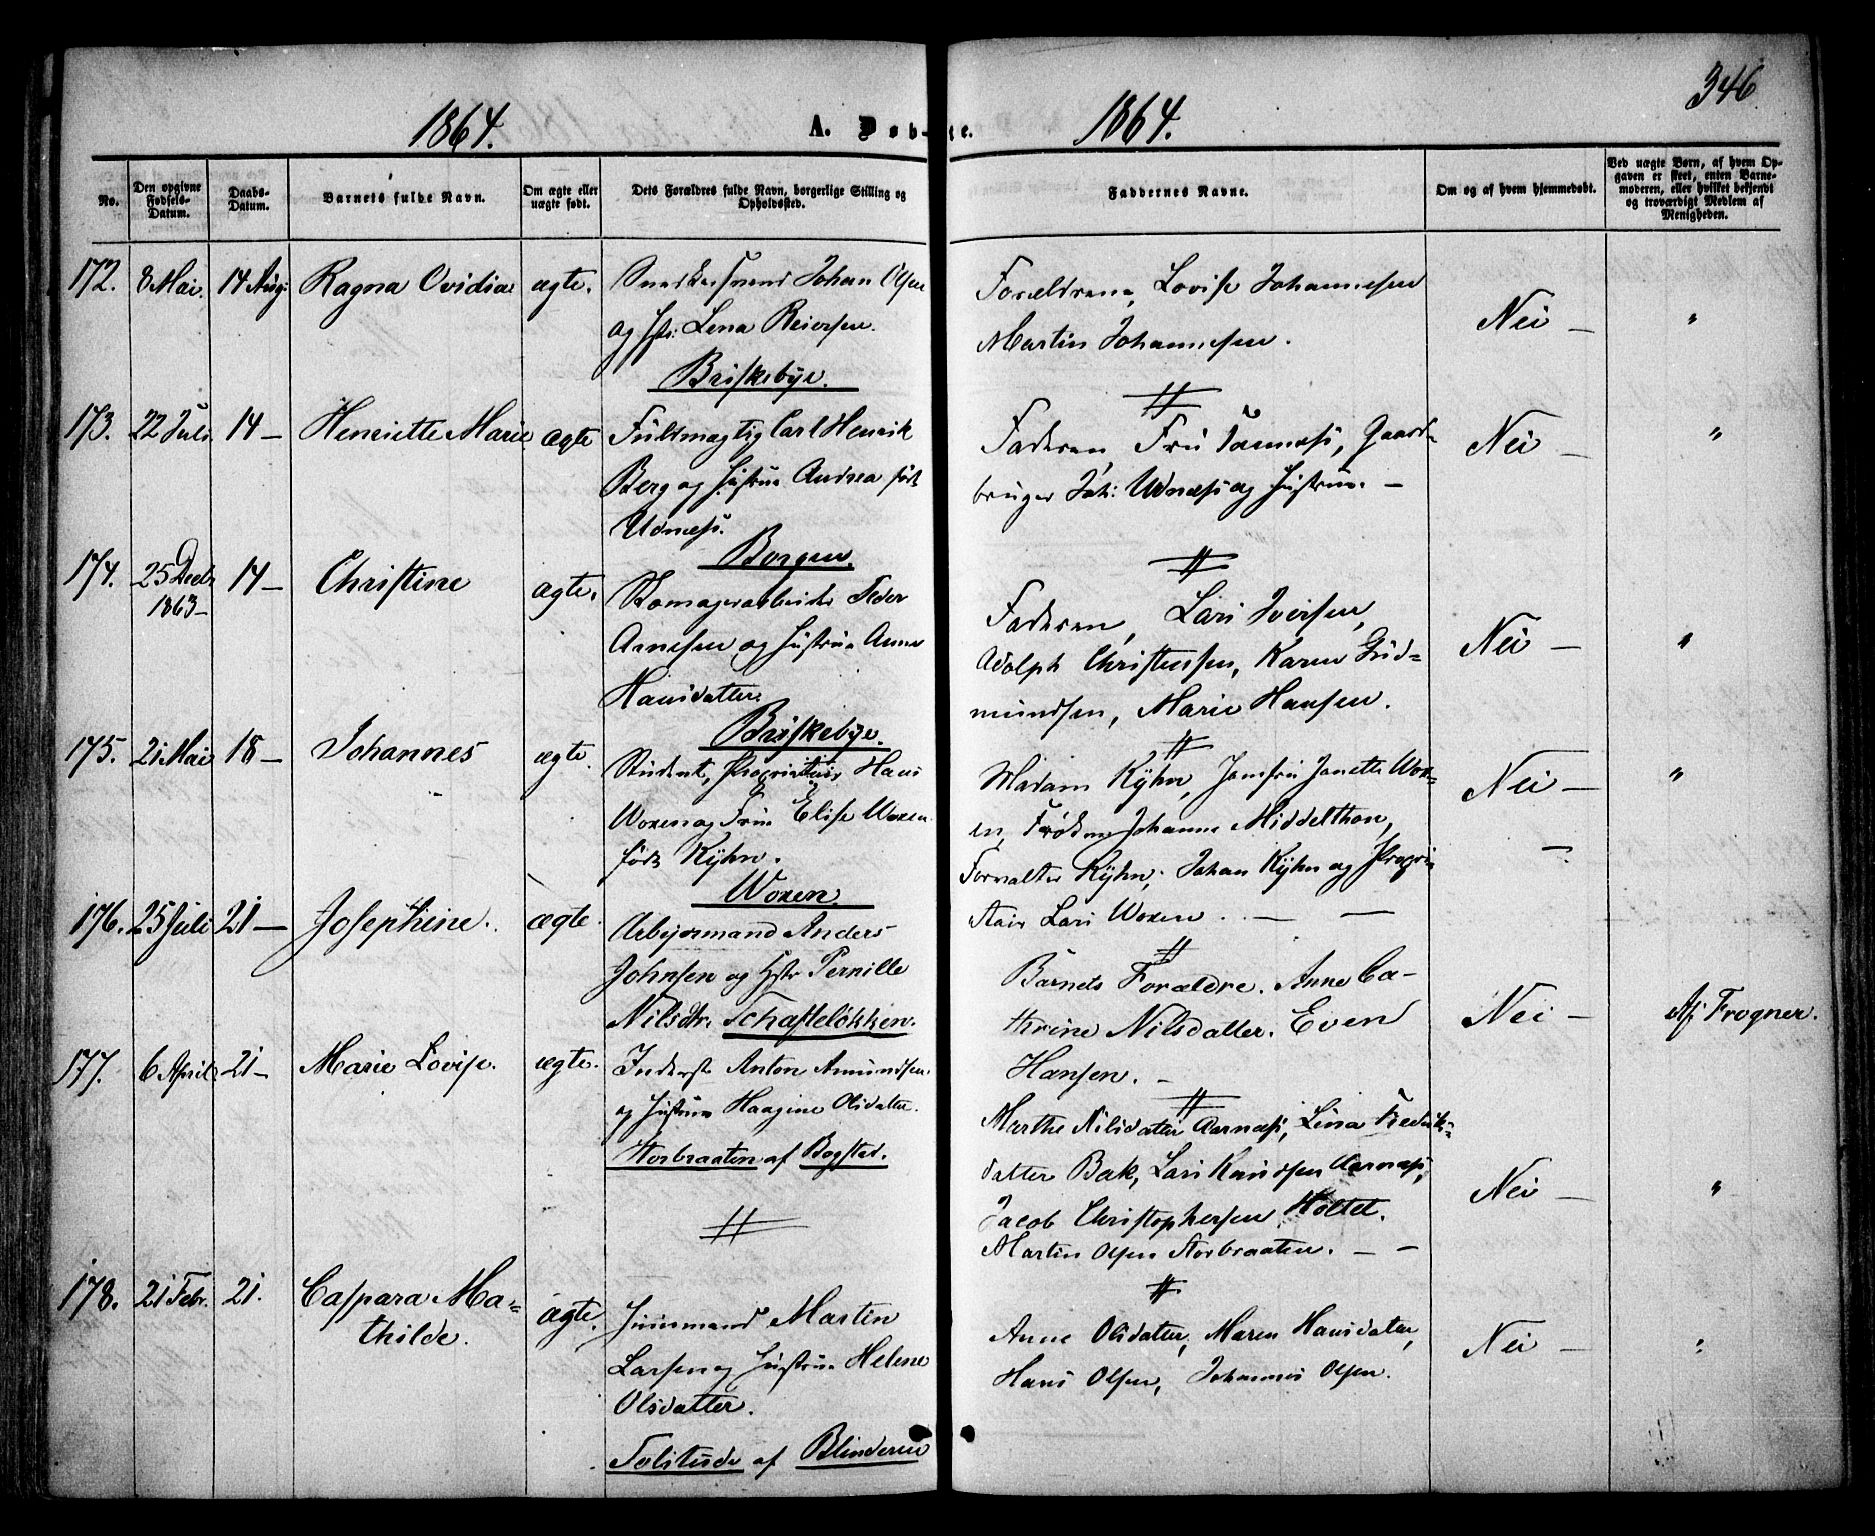 346
1864. A. Døb- te. 1864.
No.
Den opgivne Fødsels-Datum.
Daabs-Datum.
Barnets fulde Navn.
Om ægte eller uægte født.
Dets Forældres fulde Navn, borgerlige Stilling og Opholdssted.
Faddernes Navne.
Om og af hvem hjemmedøbt.
Ved uægte Børn, af hvem Opgaven er skeet, enten Barnemoderen, eller hvilket bekjendt og troværdigt Medlem af Menigheden.
172. 8 Mai. 14 Aug: Ragna Ovidia ægte. Snedkersvend Johan Olsen
og Hstr: Lena Reiersen.
Briskebye.
Forældrene, Lovise Johannesen
Martin Johannesen.
Nei — "
173. 22 Juli 14 — Henriette Marie ægte Fuldmægtig Carl Henrik
Berg og Hustrue Andrea født
Udnæs.
Borgen.
Faderen, Fru Udnæs, Gaard-
bruger Joh: Udnæs og Hustrue. —
Nei — "
174. 25 Decb 1863 — 14 — Christine ægte. Skomagerarbeider Peder
Arnesen og Hustrue Anne
Hansdatter.
Briskebye.
Faderen, Lars Iversen,
Adolph Christensen, Karen Gud-
mundsen, Marie Hansen.
Nei — "
175. 21 Mai 18 — Johannes ægte. Student, Proprietair Hans
Woxen og Frue Elise Woxen
født Kÿhn.
Woxen.
Madam Kÿhn, Jomfru Janette Wox-
en, Frøken Johanne Middelthon,
Forvalter Kÿhn, Johan Kÿhn og Proprie
tair Lars Woxen. — —
Nei — "
176. 25 Juli 21 — Josephine. ægte. Arbeidsmand Anders
Johnsen og Hstr Pernille
Nilsdtr. Schafteløkken.
Barnets Forældre. Anne Ca-
thrine Nilsdatter. Even
Hansen. —
Nei — Af Frogner.
177. 6 April. 21 — Marie Lovise. ægte. Inderst Anton Amundsen
og Hustrue Haagine Olsdatter.
Storbraaten af Bogstad.
Marthe Nilsdatter Aarnæs, Lina Fredriks-
datter Bak, Lars Knudsen Aarnæs,
Jacob Christophersen Holtet.
Martin Olsen Storbraaten. — —
Nei — "
178. 21 Febr. 21. Caspara Ma-
thilde. ægte. Huusmand Martin
Larsen og Hustrue Helene
Olsdatter.
Solitude af Blinderen
Anne Olsdatter, Maren Hansdatter,
Hans Olsen, Johannes Olsen.
Nei — "